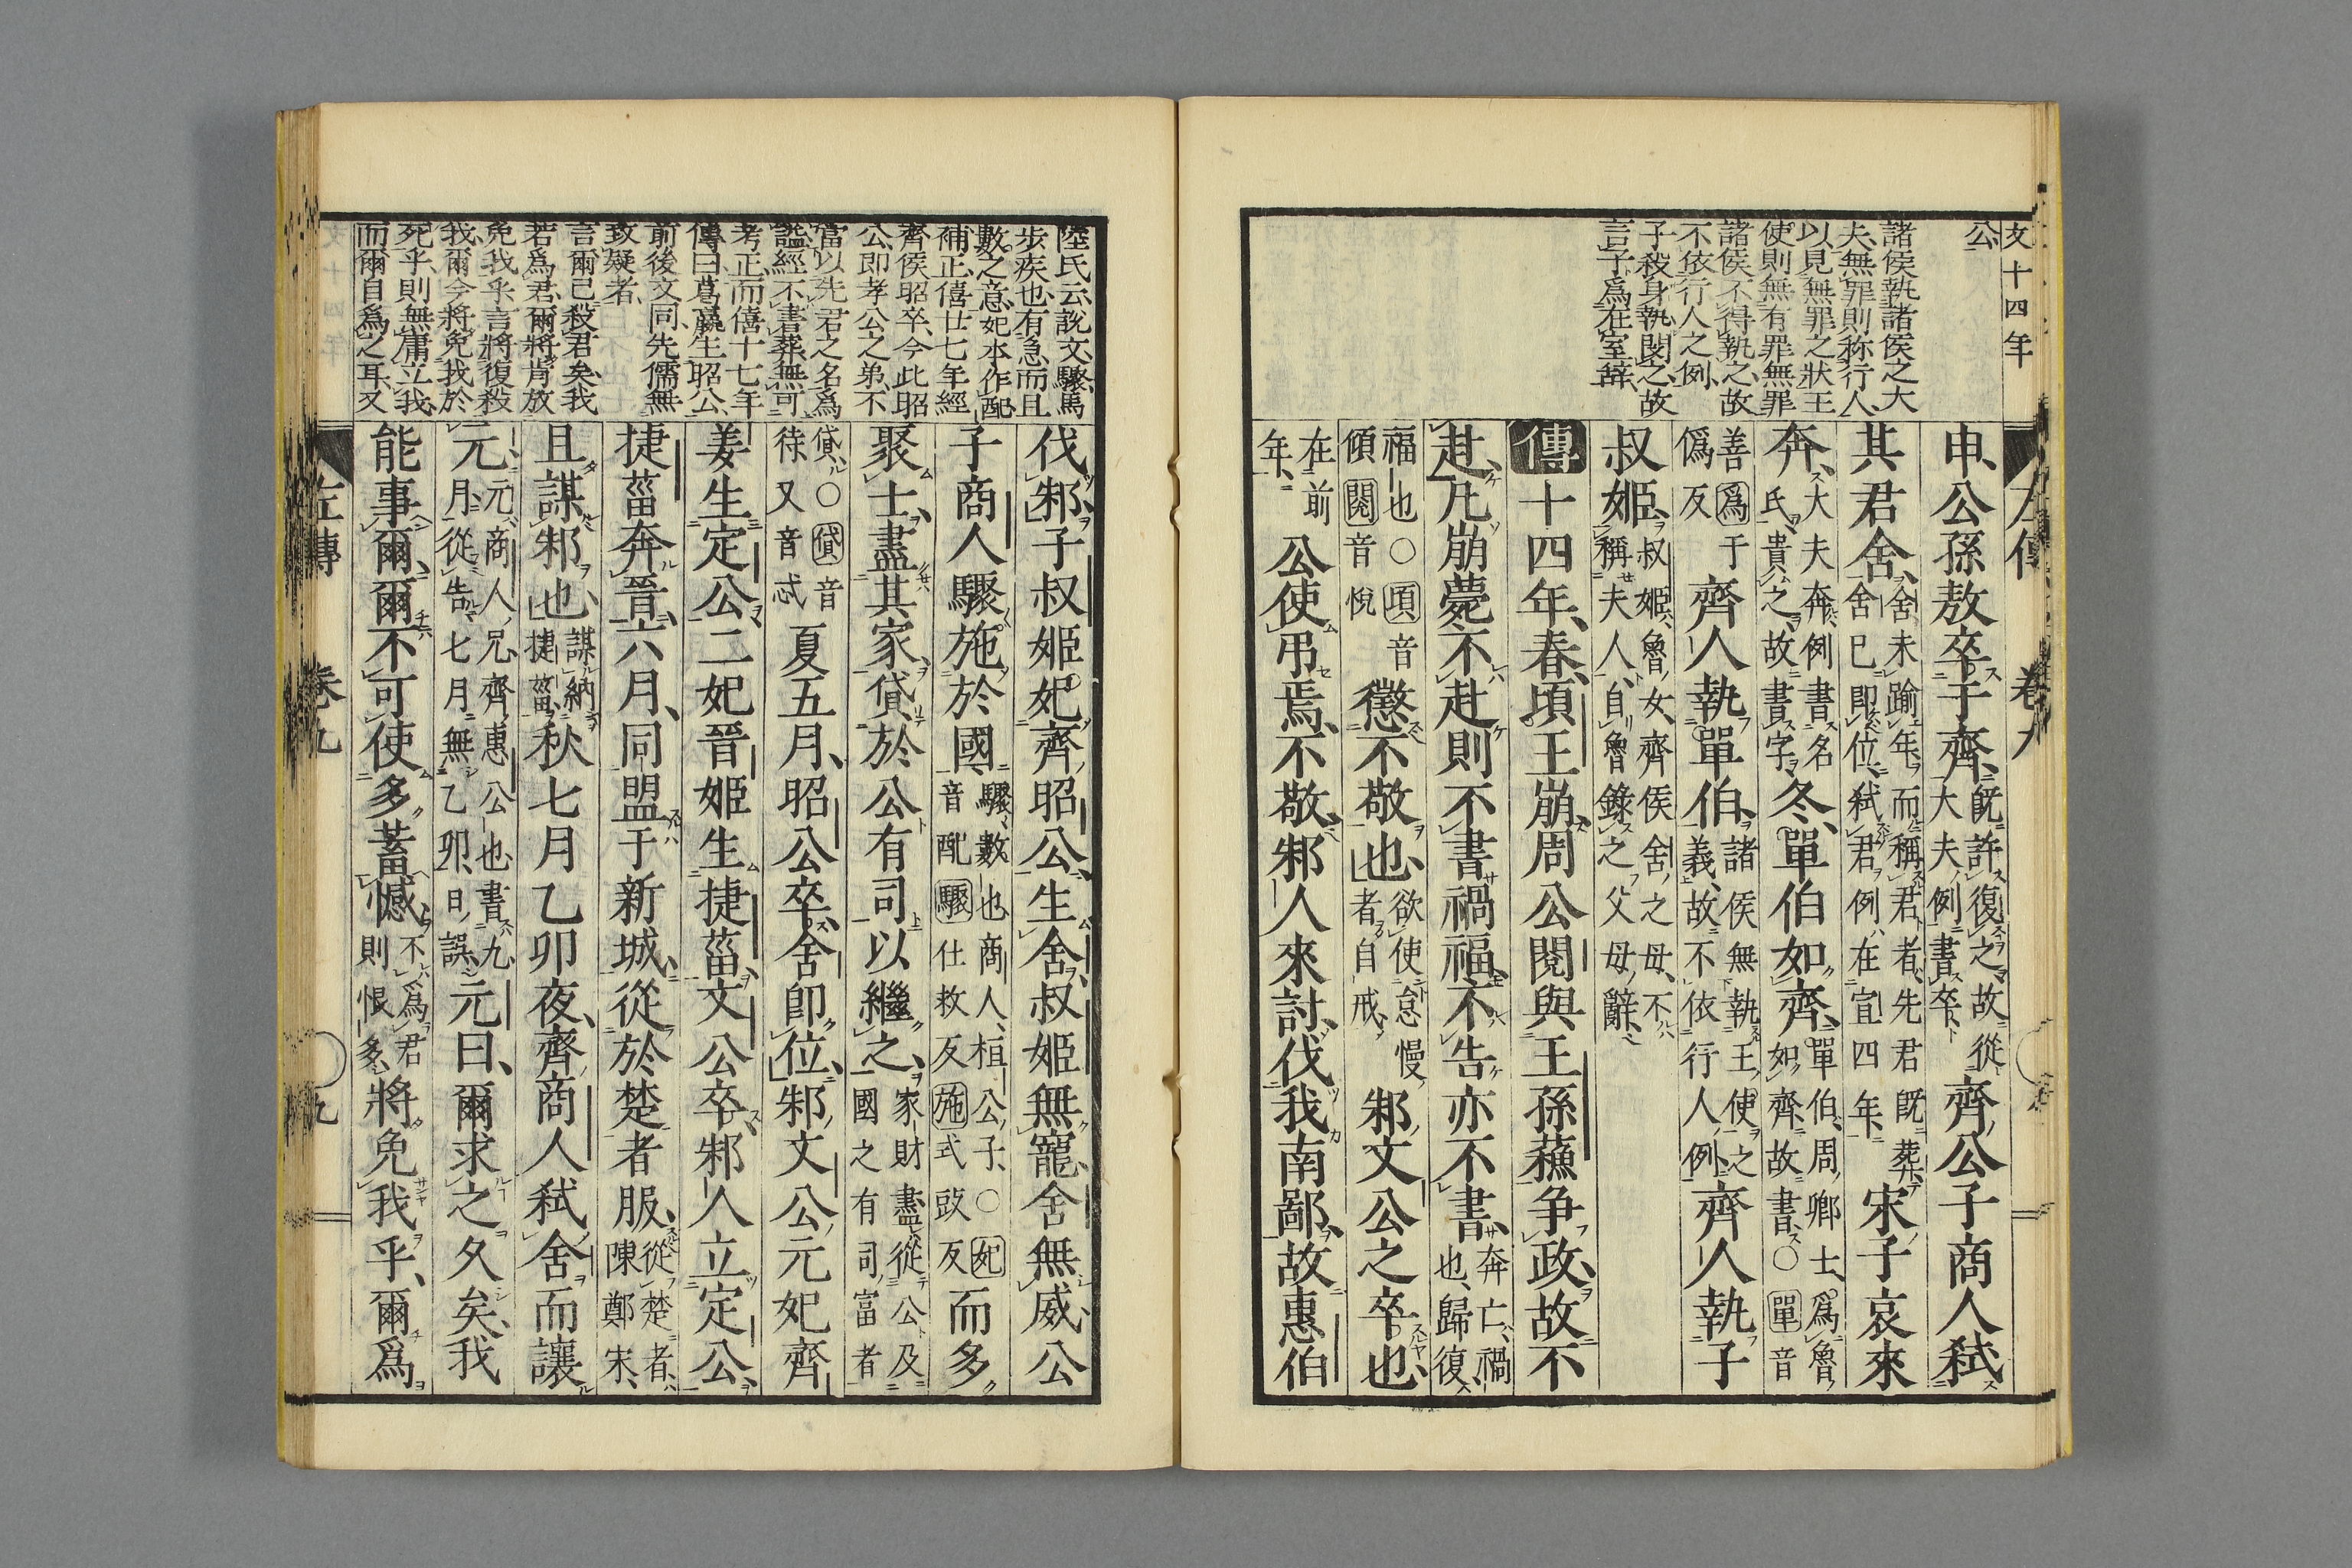 文十四年
公
諸侯執諸侯之大
夫無罪則称行人
以見無罪之狀王
使則無有罪無罪
諸侯不得執之故
不依行人之例
子殺身執閔之故
言子爲在室辭
申公孫敖卒于齊既許復之故從大夫例書卒齊公子商人弒
其君舍舍未踰年而稱君者先君既葬舍已即位弒君例在宣四年宋子哀來
奔大夫奔例書名氏貴之故書字冬單伯如齊單伯周卿士爲魯如齊故書○單音
善爲于僞反齊人執單伯諸侯無執王使之義故不依行人例齊人執子
叔姬叔姬魯女齊侯舍之母不稱夫人自魯錄之父母辭
傳十四年春頃王崩周公閱與王孫蘇争政故不
赴凡崩薨不赴則不書禍福不告亦不書奔亡禍也歸復
福也○頃音傾閱音悅懲不敬也欲使怠慢者自戒邾文公之卒也
在前年公使吊焉不敬邾人來討伐我南鄙故惠伯
陸氏云說文驟馬
步疾也有急而且
數之意妃本作配
補正僖廿七年經
齊侯昭卒今此昭
公即孝公之弟不
當以先君之名爲
謚經不書葬無可
考正而僖十七年
傳曰葛嬴生昭公
前後文同先儒無
致疑者
言爾已殺君矣我
若爲君爾將肯放
免我乎言將復殺
我爾今將免我於
死乎則無庸立我
而爾自爲之耳又
伐邾子叔姬妃齊昭公生舍叔姬無寵舍無威公
子商人驟施於國驟數也商人桓公子○妃音配驟仕救反施式豉反而多
聚士盡其家貸於公有司以繼之家財盡從公及國之有司富者
貸○貸音待又音忒夏五月昭公卒舍即位邾文公元妃齊
姜生定公二妃晉姬生捷菑文公卒邾人立定公
捷菑奔晉六月同盟于新城從於楚者服從楚者陳鄭宋
且謀邾也謀納捷菑秋七月乙卯夜齊商人弒舍而讓
元元商人兄齊惠公也書九月從告七月無乙卯日誤元曰爾求之久矣我
能事爾爾不可使多蓄憾不爲君則恨多將免我乎爾爲
左傳 卷九 九